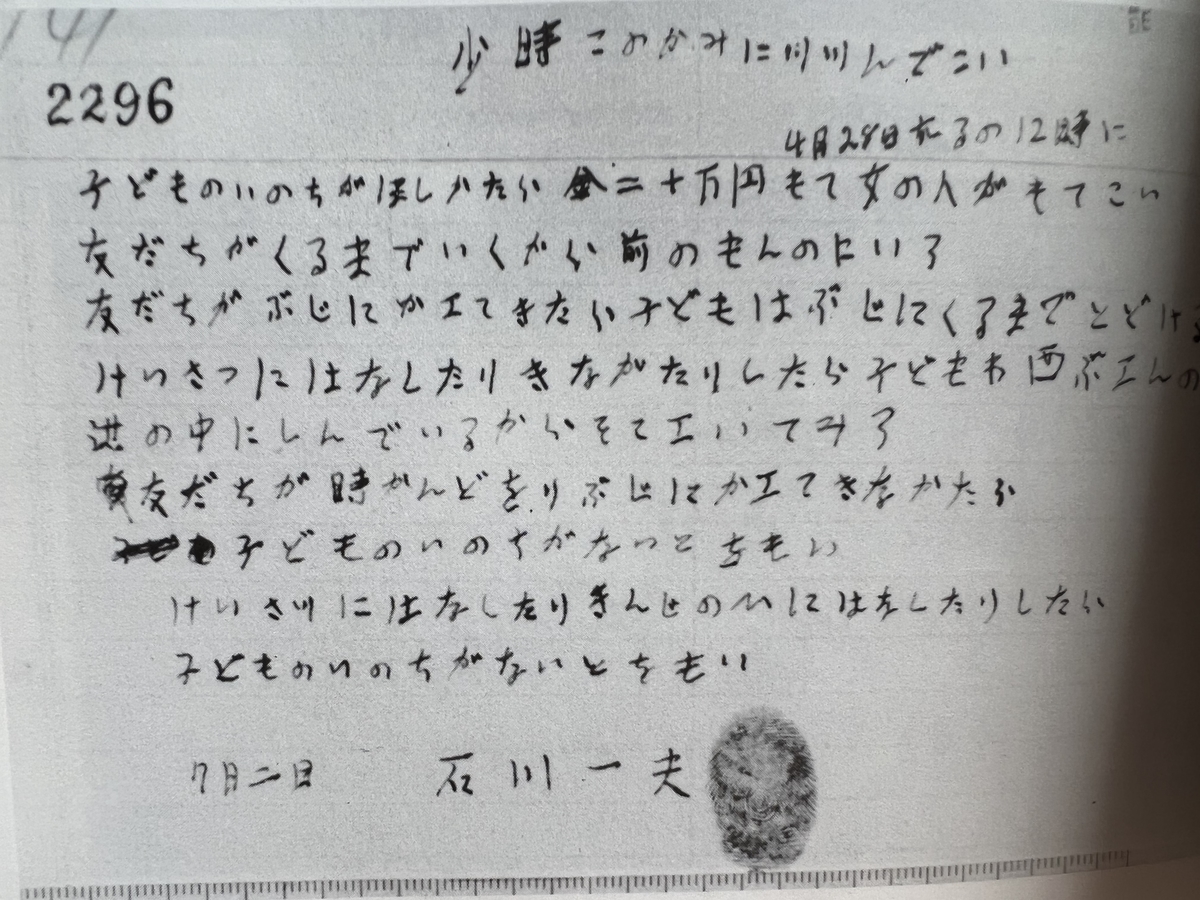 141
2296
少時このかみに川川んでこい
4月28日なるの12時に
子どものいのちがほしかたら金二十万円もて女の人がもてこい
友だちがくるまでいくから前のもんのにいろ
友だちがぶじにかエてきたら子どもはぶじにくるまでとどける
けいさつにはなしたりきながたりしたら子どもわ西ぶエんの
中にしんでいるからそこエいてみろ
友だちが時かんどをりぶじにかエてきなかたら
子どものいのちがないとをもい
けいさ川にはなしたりきんじの人にはなしたりしたら
子どものいのちがないとをもい
7月二日 石川一夫